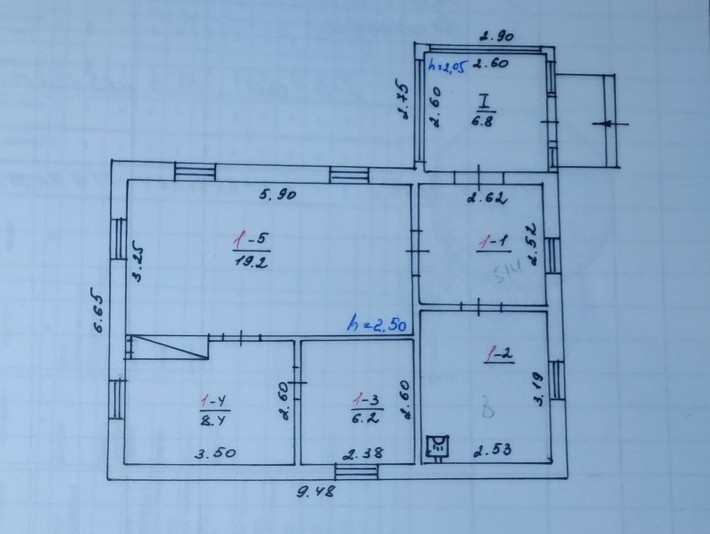 2.90
h=2,05
2.60
2.75
2.60
I
6.8
5.90
2.62
1-5
19.2
3.25
1-1
2.52
6.65
h=2.50
1-2
3.19
1-4
8.4
2.60
1-3
6.2
2.60
3.50
2.38
2.53
9.48